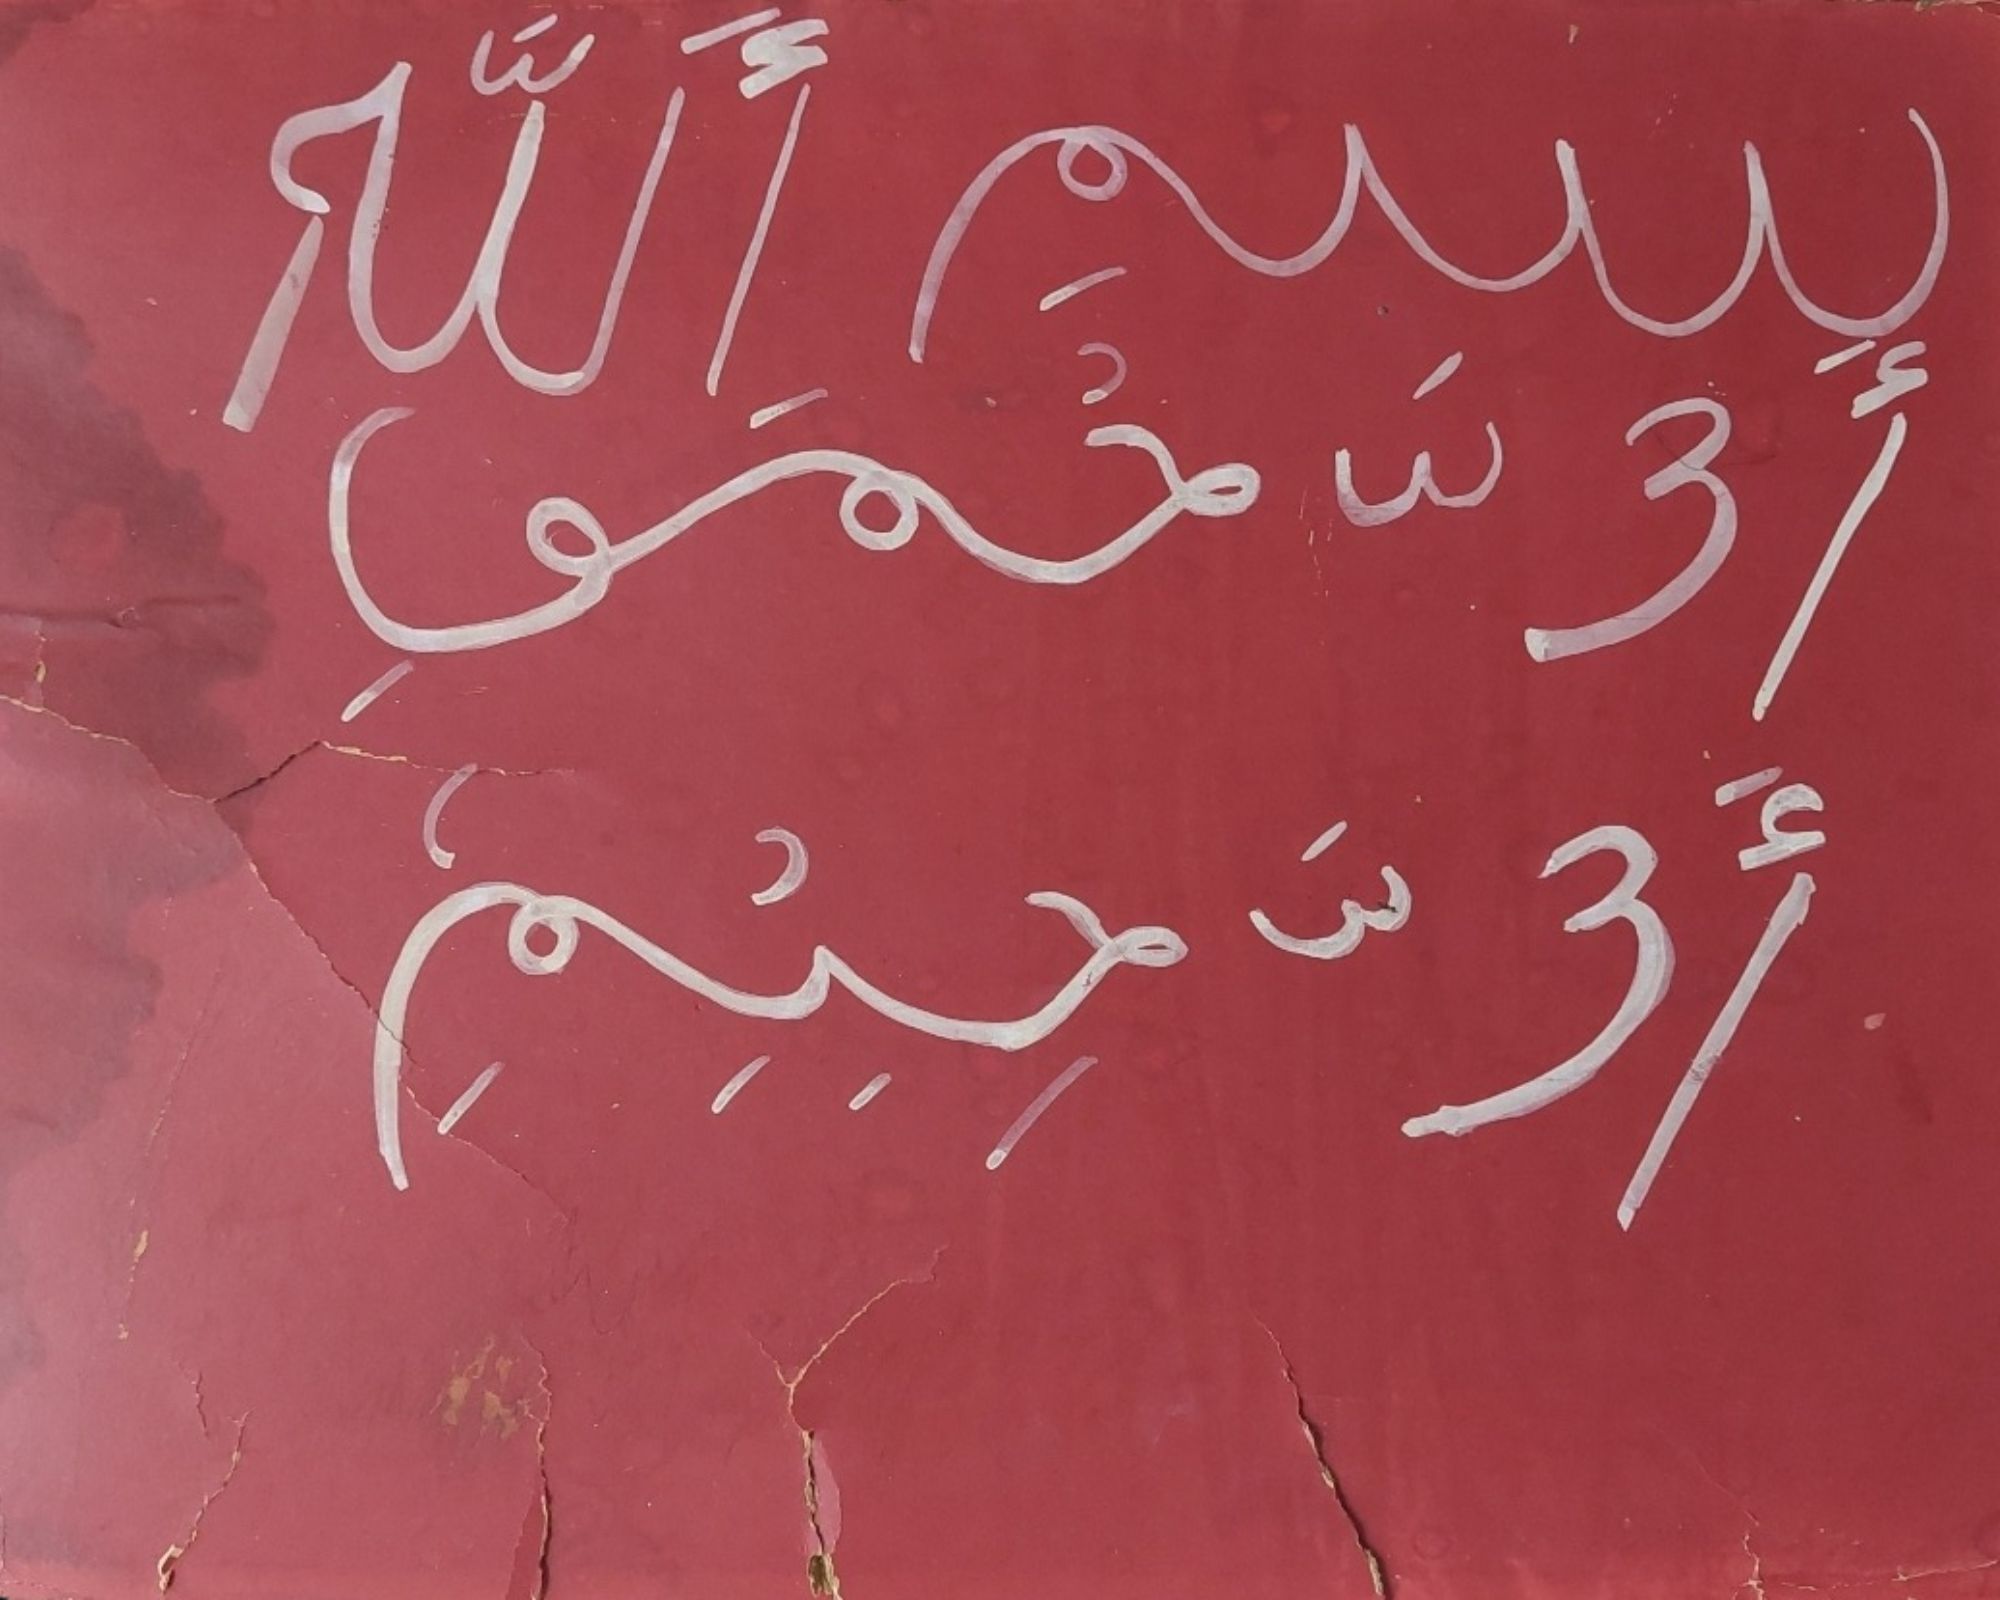 بِسمِ أَللَّه
أَلرَّحْمَنِ
أَلرَّحِيْمِ